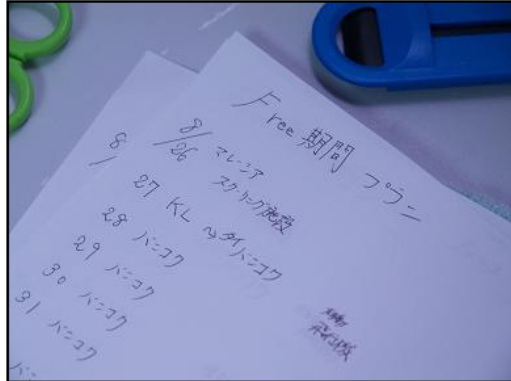 Free 期間 プラン
8/26 マレーシア
スクーリング施設
27 KL → タイバンコク
28 バンコク
29 バンコク
30 バンコク
31 バンコク
8/